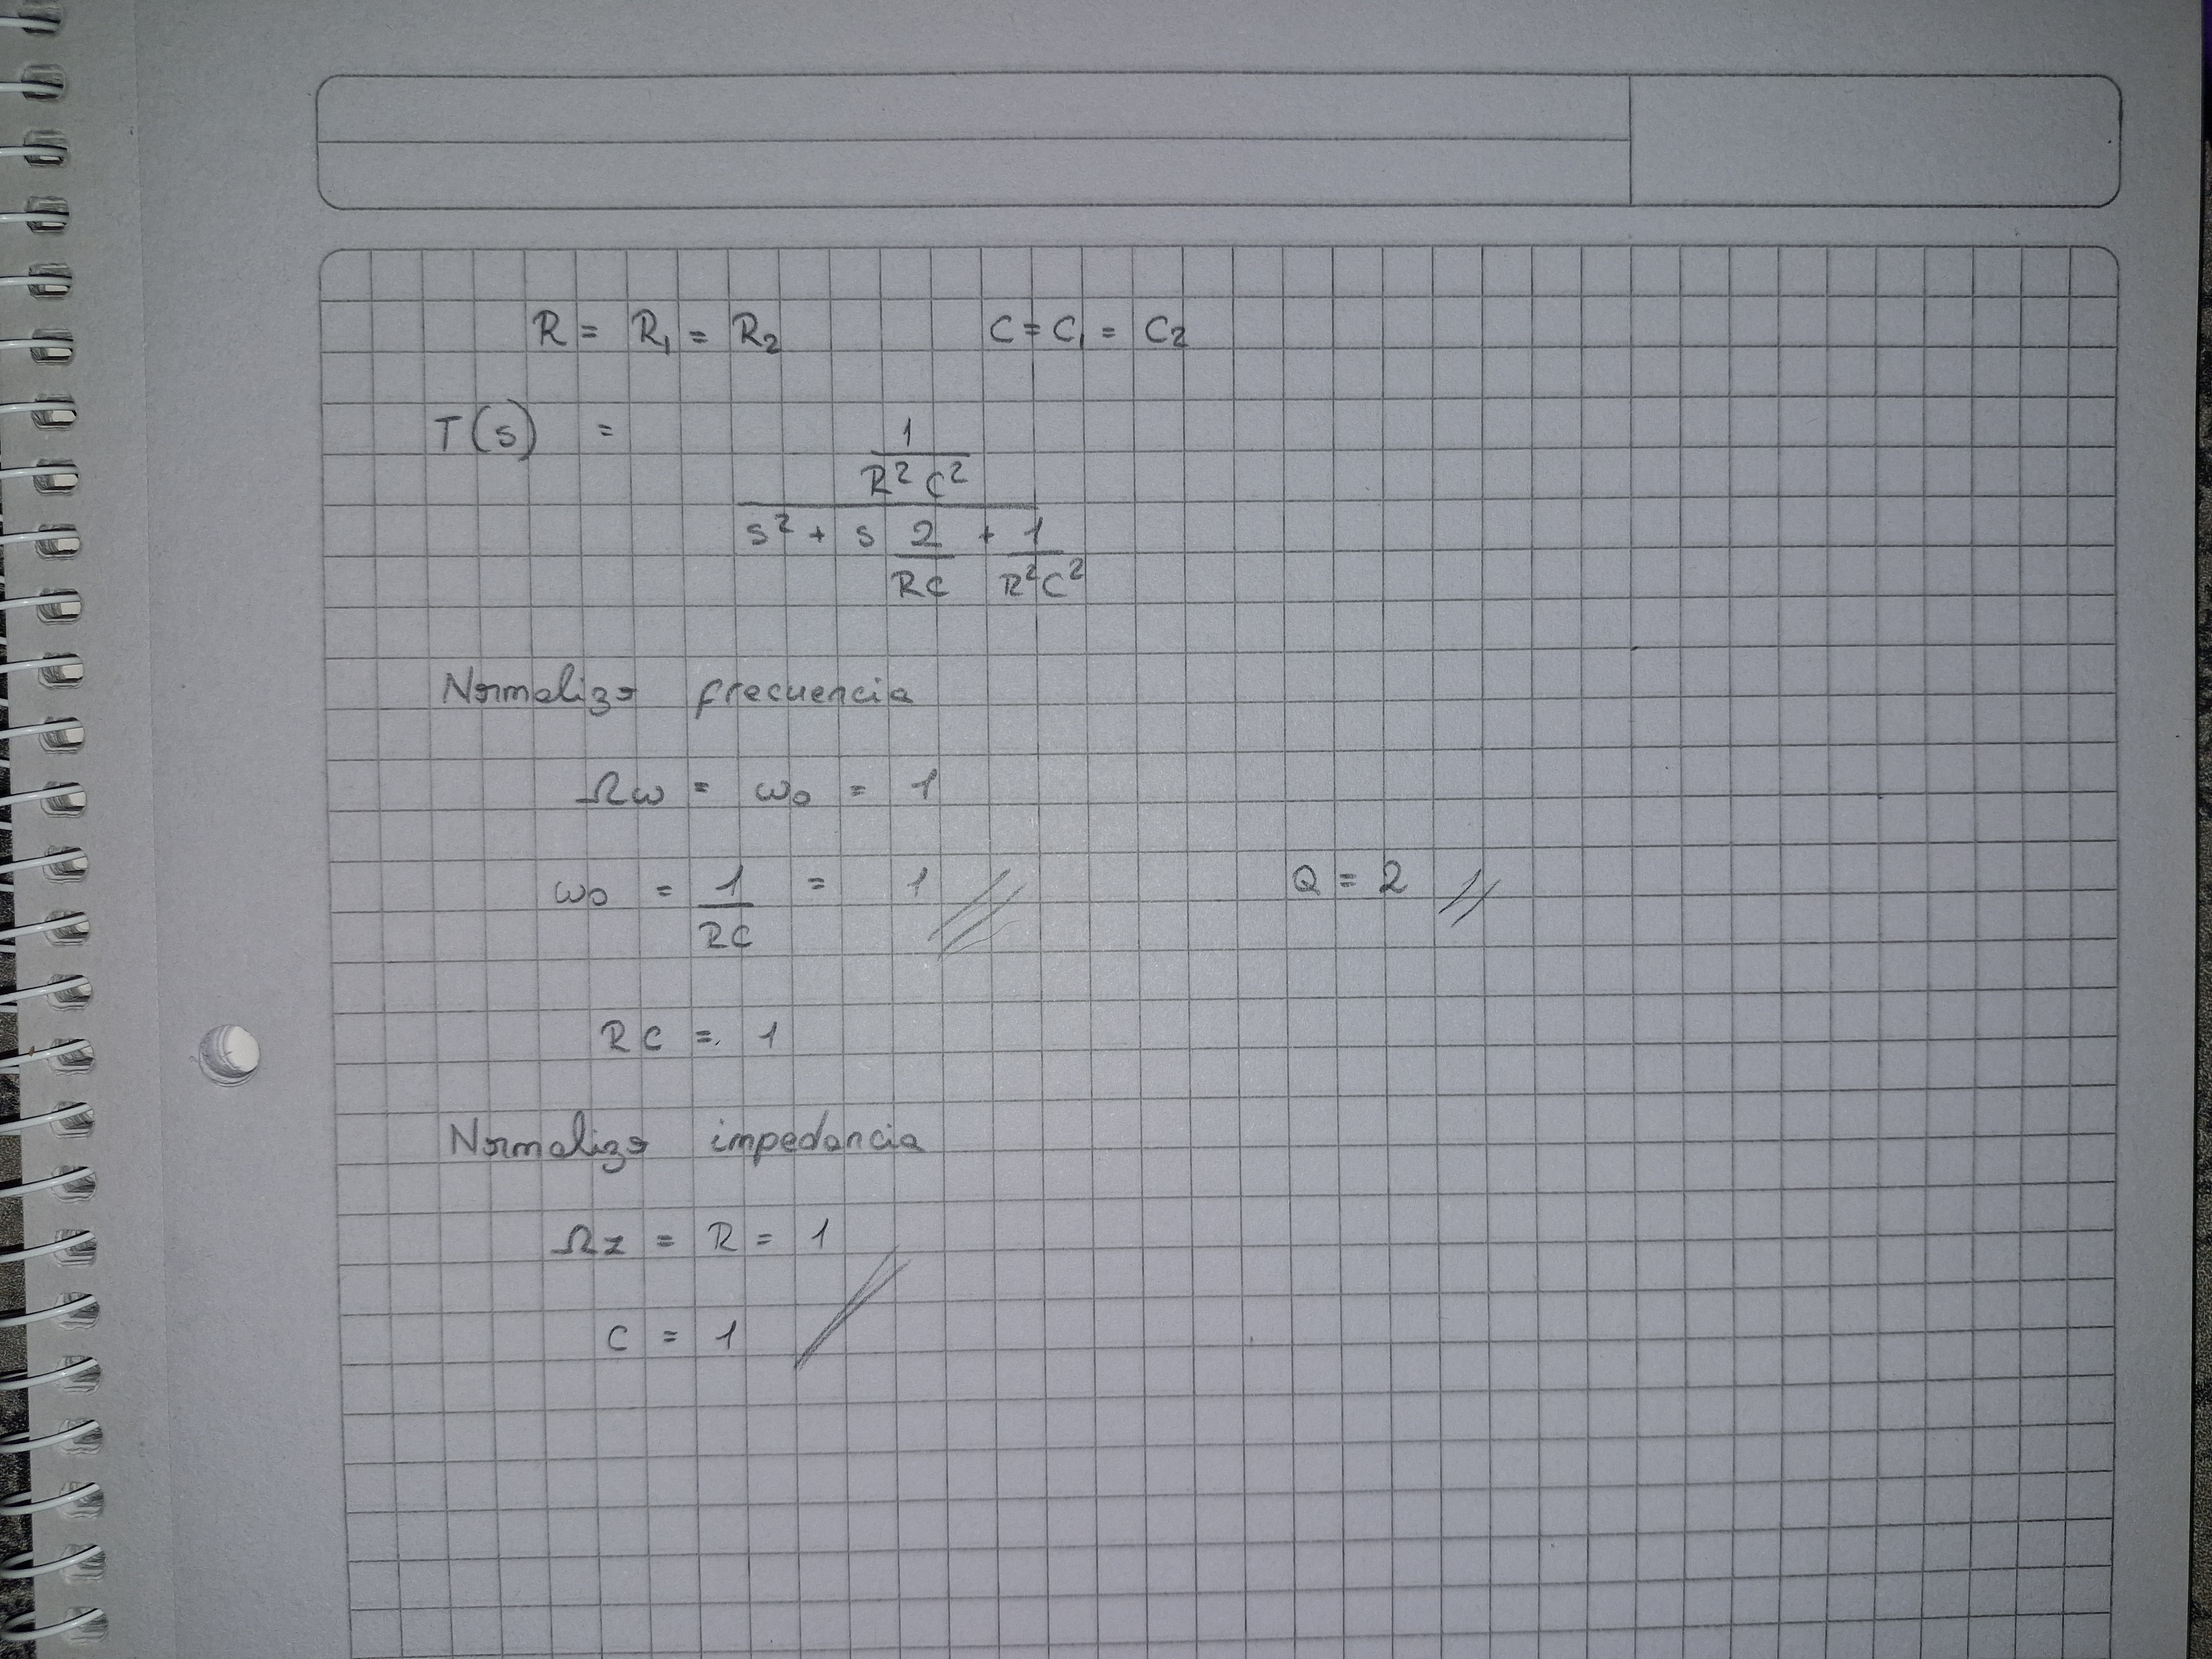 R = R₁ = R₂ C = C₁ = C₂
T(s) = (1 / (R² C²)) / (s² + s 2/(RC) + 1/(R²C²))
Normalizo frecuencia
Ωω = ω₀ = 1
ω₀ = 1/(RC) = 1 // Q = 2 //
RC = 1
Normalizo impedancia
Ωz = R = 1
C = 1 //